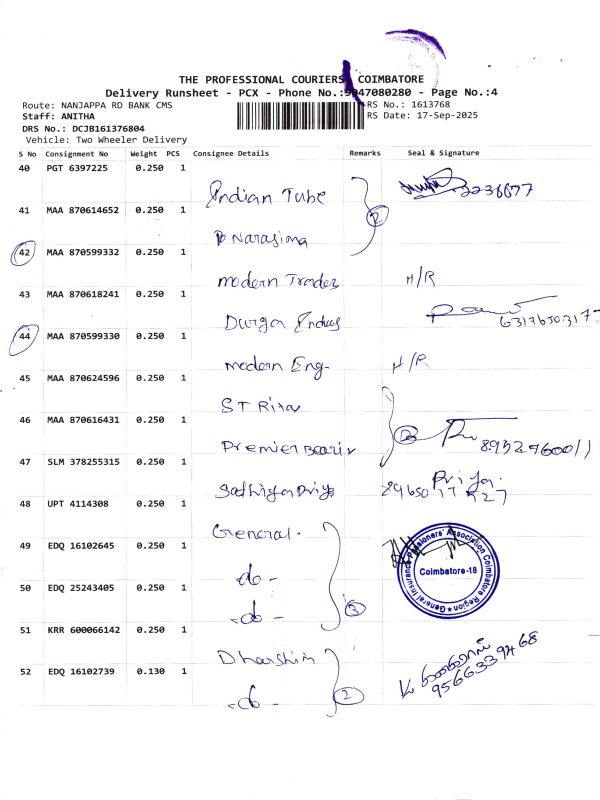 THE PROFESSIONAL COURIERS, COIMBATORE
Delivery Runsheet - PCX - Phone No.:9047080280 - Page No.:4
Route: NANJAPPA RD BANK CMS
RS No.: 1613768
Staff: ANITHA
RS Date: 17-Sep-2025
DRS No.: DCJB161376804
Vehicle: Two Wheeler Delivery
S No Consignment No Weight PCS Consignee Details Remarks Seal & Signature
40 PGT 6397225 0.250 1
Indian Tube 2
41 MAA 870614652 0.250 1
Narasima
42 MAA 870599332 0.250 1
modern Trades H/R
43 MAA 870618241 0.250 1
Durga
44 MAA 870599330 0.250 1
modern Eng- H/R
45 MAA 870624596 0.250 1
ST
46 MAA 870616431 0.250 1
Premier
47 SLM 378255315 0.250 1
Sathiyapriya Priya
48 UPT 4114308 0.250 1
General.
49 EDQ 16102645 0.250 1
-do-
50 EDQ 25243405 0.250 1
-do- 3
General Insurance Pensioners' Association Coimbatore Region
Coimbatore-18
51 KRR 600066142 0.250 1
Dharshini
52 EDQ 16102739 0.130 1
-do- 2
9566339468